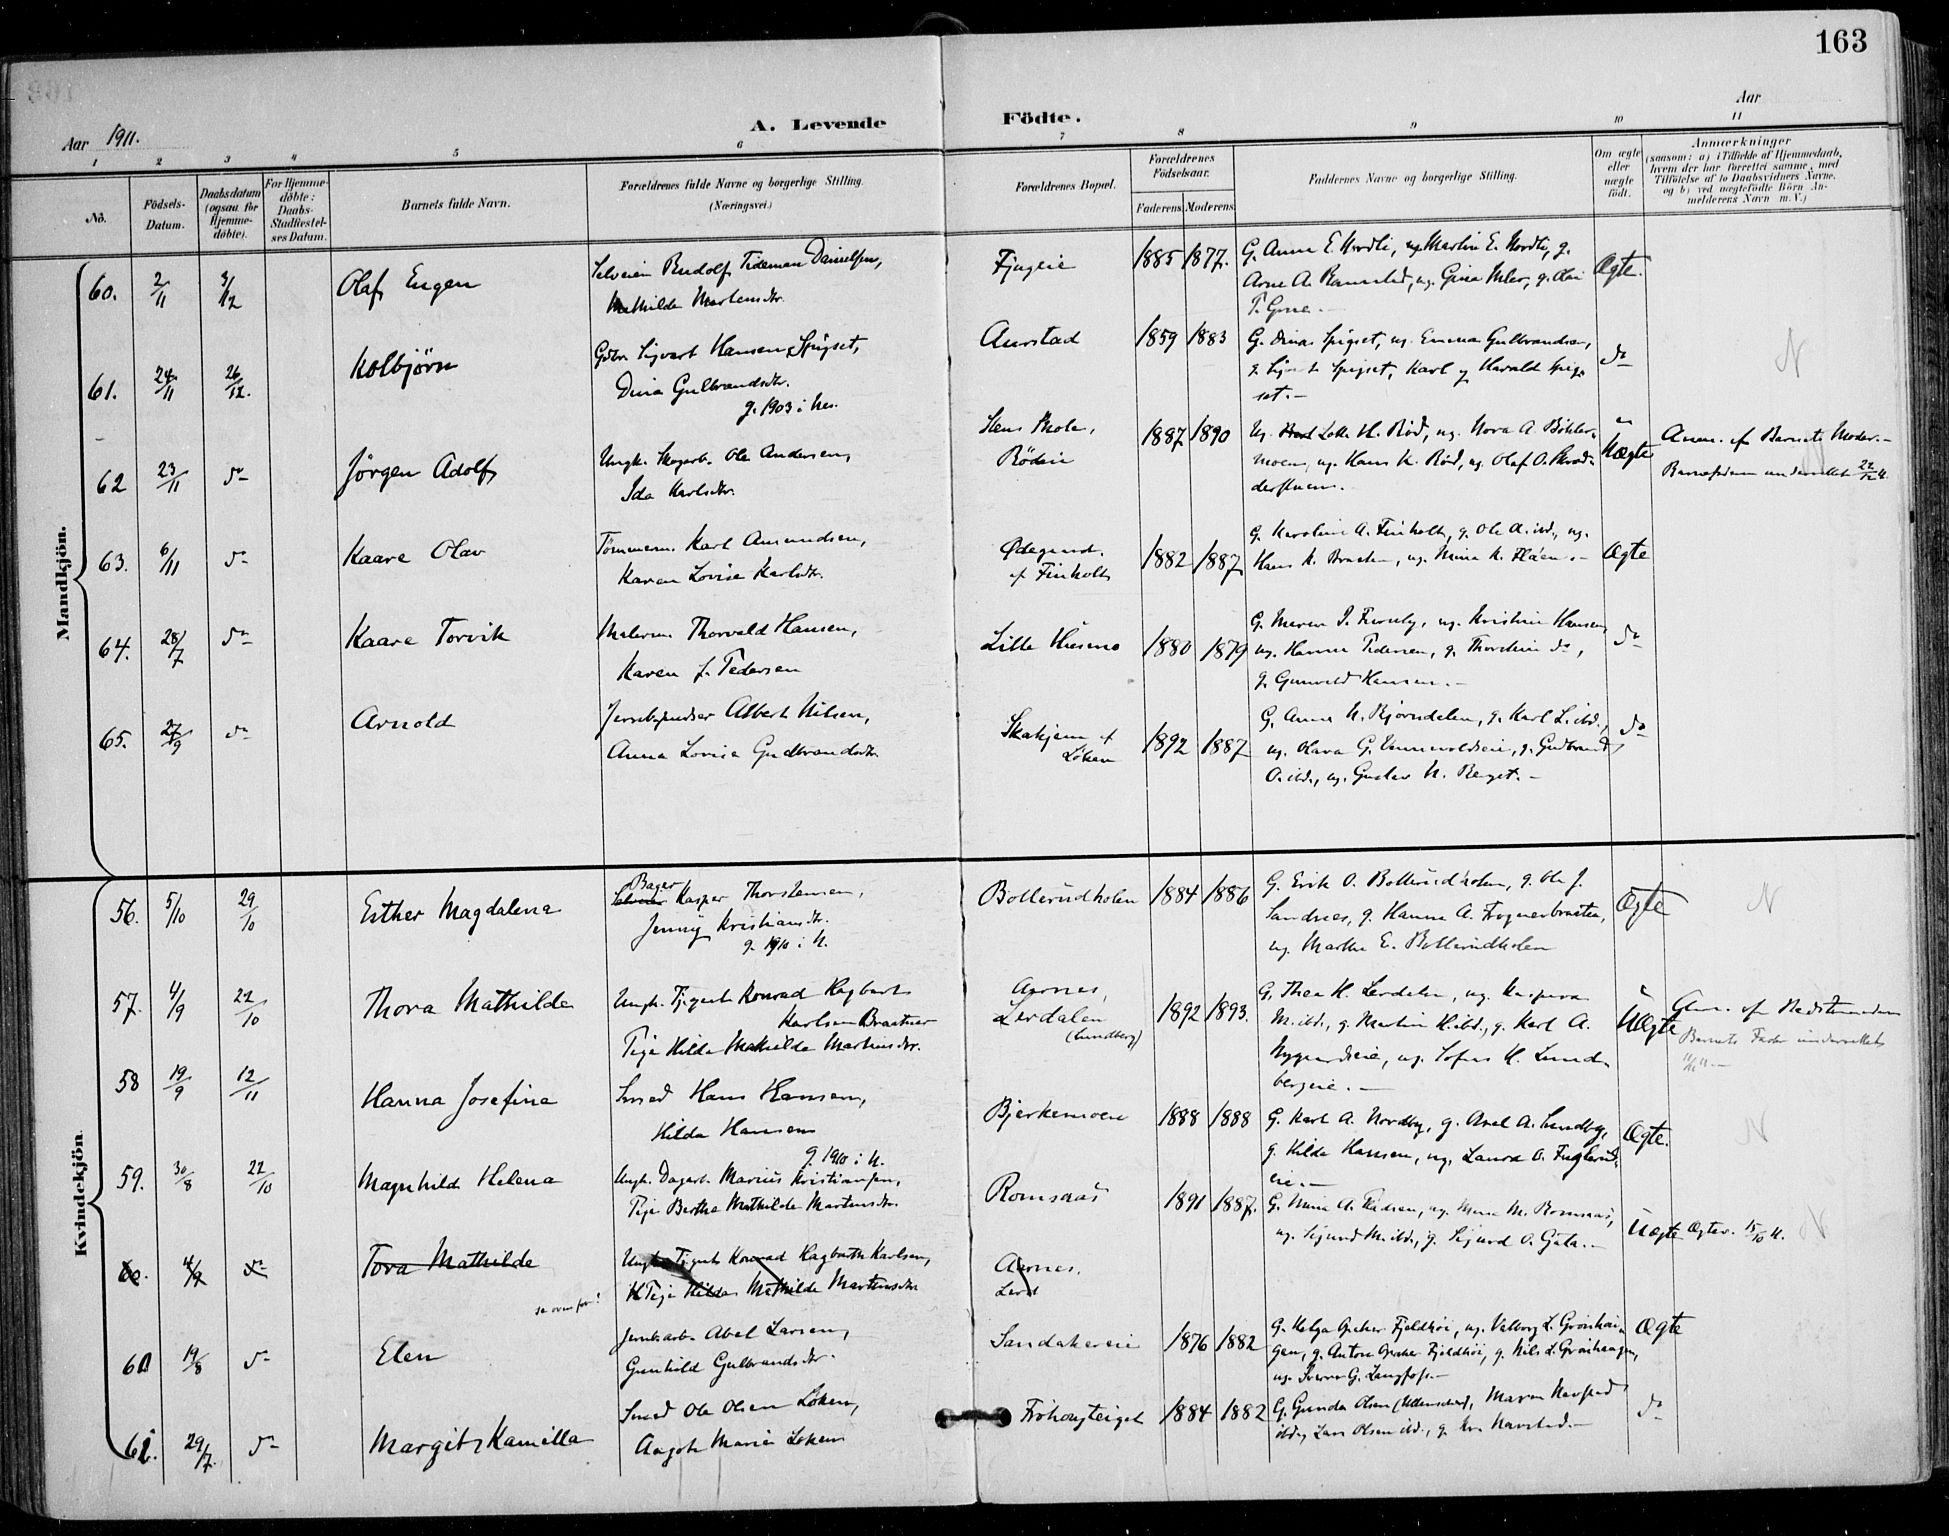 163
Aar 1911.
A. Levende Födte.
Aar
1 2 3 4 5 6 7 8 9 10 11
No.
Födsels-Datum.
Daabsdatum (ogsaa for Hjemme-døbte).
For Hjemme-døbte: Daabs-Stadfæstel-ses Datum.
Barnets fulde Navn.
Forældrenes fulde Navne og borgerlige Stilling.
(Næringsvei.)
Forældrenes Bopæl.
Forældrenes Födselsaar.
Faderens. Moderens.
Faddernes Navne og borgerlige Stilling.
Om ægte eller uægte födt.
Anmærkninger
(saasom: a) i Tilfælde af Hjemmedaab,
hvem der har forrettet samme, med
Tilföielse af to Daabsvidners Navne,
og b) ved uægtefödte Börn An-
melderens Navn m. V.)
Mandkjön.
60. 2/11 3/12 Olaf Eugen
Rudolf Tideman Danielsen,
Mathilde Martensdtr.
1885 1877.
Ægte.
61. 24/11 26/12. Kolbjörn
Gdbr. Sigvart Hansen Spigset,
Dina Gulbrandsdtr.
g. 1903 i Nes.
Aurstad 1859 1883
G. Dina Spigset, ug. Emma Gulbrandsen,
Spigset, Karl og Harald Spig-
set.-
do
N
62 23/11 do Jörgen Adolf
Ungk. Skogarb. Ole Andersen,
Ida Karlsdtr.
Rödeie
1887 1890
Lotte H. Röd, ug. Nora A. Böhler-
moen, ug. Hans K. Röd, ug. Olaf O.
Uægte
Anm. af Barnets Moder.-
Barnefaderen underrettet 22/12 11.
63. 6/11 do Kaare Olav
Tömmerm. Karl Amundsen,
Karen Lovise Karlsdtr.
Ødegaard.
af Finholt
1882 1887
G. Karoline A. Finholt, g. Ole A. ibd., ug.
Hans K. Braaten, ug. Mina K.
Ægte
64. 28/7 do Kaare Torvik
Malerm. Thorvald Hansen,
Karen f. Pedersen
Lille Husemo 1880 1879
G. Maren P. Fernby, ug. Kristine Hansen,
ug. Hanna Pedersen, g. Thorstein do,
g. Gunvald Hansen.-
do
65. 27/9 do Arnold
Albert Nilsen,
Anna Lovise Gudbrandsdtr.
Skakjem af
Løken
1892 1887
G. Anna N. Bjørndalen, g. Karl L. ibd.,
ug. Olava G. g. Gudbrand
O. ibd., ug. Gustav N. Berget.-
do
Kvindekjön.
56. 5/10 29/10 Esther Magdalena
Bager
Kasper Thorstensen,
Jenny Kristiansdtr.
g. 1910 i N.
Bollerudholen 1884 1886
G. Erik O. Bollerudholen, g. Ole J.
Sandnes, g. Hanna A. Fognerbraaten,
ug. Marthe E. Bollerudholen
Ægte
N
57. 4/9 22/10 Thora Mathilde
Ungk. Konrad Hagbart
Karlsen Braatner
Pige Hilda Mathilde Martinsdtr.
Aarnes,
Lerdalen
(Lundberg)
1892 1893.
G. Thea H. Lerdalen, ug. Kaspara
M. ibd., g. Martin H. ibd., g. Karl A.
Nygaardseie, ug. Sofus H. Lund-
bergeie.-
Uægte
Anm. af
Barnets Fader underrettet
58 19/9 12/11 Hanna Josefine
Smed Hans Hansen,
Hilda Hansen
g. 1910 i N.
Bjerkemoen 1888 1888
G. Karl A. Nordby, g. Axel A. Lundby,
g. Hilda Hansen, ug. Laura O. Fuglerud-
eie.-
Ægte.
N
59. 30/8 22/10 Magnhild Helena
Ungk. Dagarb. Marius Kristiansen,
Pige Berthe Mathilde Martensdtr.
Romsaas 1891 1887.
G. Mina A. Madsen, ug. Mina M. Romsaas,
ug. Sigurd M. ibd., g. Sigurd O. Gata.-
Uægte
Ægtev. 15/10 11.
N
60. 4/9 do Tova Mathilde
se ovenfor!
Ungk. Konrad Hagbarth Karlsen,
Pige Hilda Mathilde Martinsdtr
Aarnes.
Lerd
60 19/8 do Elen
Jernbarb. Abel Larsen,
Gunhild Gulbrandsdtr.
Sandakereie 1876 1882
G. Helga Fjeldhöi, ug. Valborg L. Grönhau-
gen, g. Anton Fjeldhöi, g. Nils L. Grönhaugen,
ug. Sverre G. Langfos.-
Ægte
61. 29/7. do Margit Kamilla
Smed Ole Olsen Løken,
Aagot Marie Løken
Frohaugteiget 1884 1882
G. Gunda Olsen Maren Navstad
ibd, Lars Olsen ibd., g. Navstad.-
do